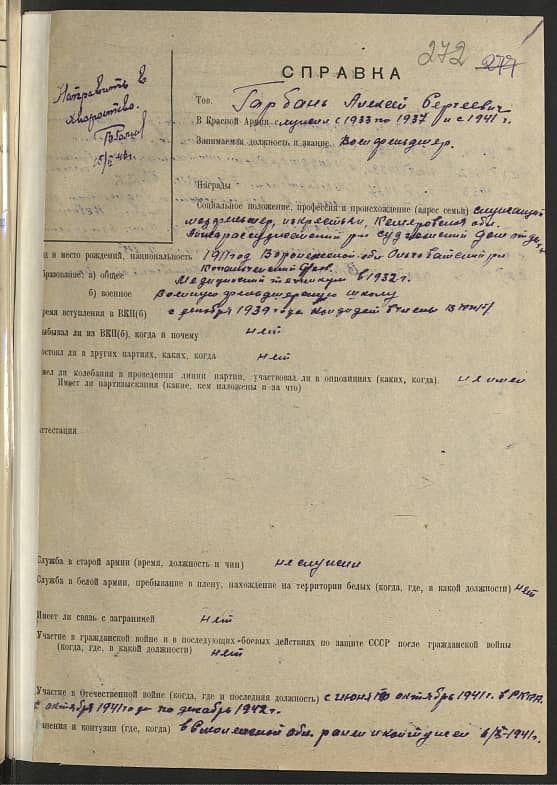 272 277
Направить в
15/II 43 г.
СПРАВКА
Тов. Гарбань Алексей Сергеевич
В Красной Армии служил с 1933 по 1937 и с 1941 г.
Занимаемая должность и звание Военфельдшер.
Награды
Социальное положение, профессия и происхождение (адрес семьи) служащий
медфельдшер, из крестьян, Кемеровская обл.
Анжеросудженский р-н Судженский Дом отдыха
д и место рождений, национальность 1911 год Воронежской обл. Ольховатский р-н
бразование: а) общее Медицинский техникум в 1932 г.
б) военное Военную фельдшерскую школу
ремя вступления в ВКП(б) с декабря 1939 года кандидат в члены ВКП(б)
ыбывал ли из ВКП(б), когда и почему нет
остоял ли в других партиях, каких, когда нет
мел ли колебания в проведении линии партии, участвовал ли в оппозициях (каких, когда). не имел
Имеет ли партвзыскания (какие, кем наложены и за что)
ттестация
Служба в старой армии (время, должность и чин) не служил
Служба в белой армии, пребывание в плену, нахождение на территории белых (когда, где, в какой должности) нет
Имеет ли связь с заграницей нет
Участие в гражданской войне и в последующих боевых действиях по защите СССР после гражданской войны
(когда, где, в какой должности) нет
Участие в Отечественной войне (когда, где и последняя должность) с июня по октябрь 1941 г. в РККА
с октября 1941 года по декабрь 1942 г.
нения и контузии (где, когда) в Смоленской обл. ранен и контужен 6/X-1941 г.